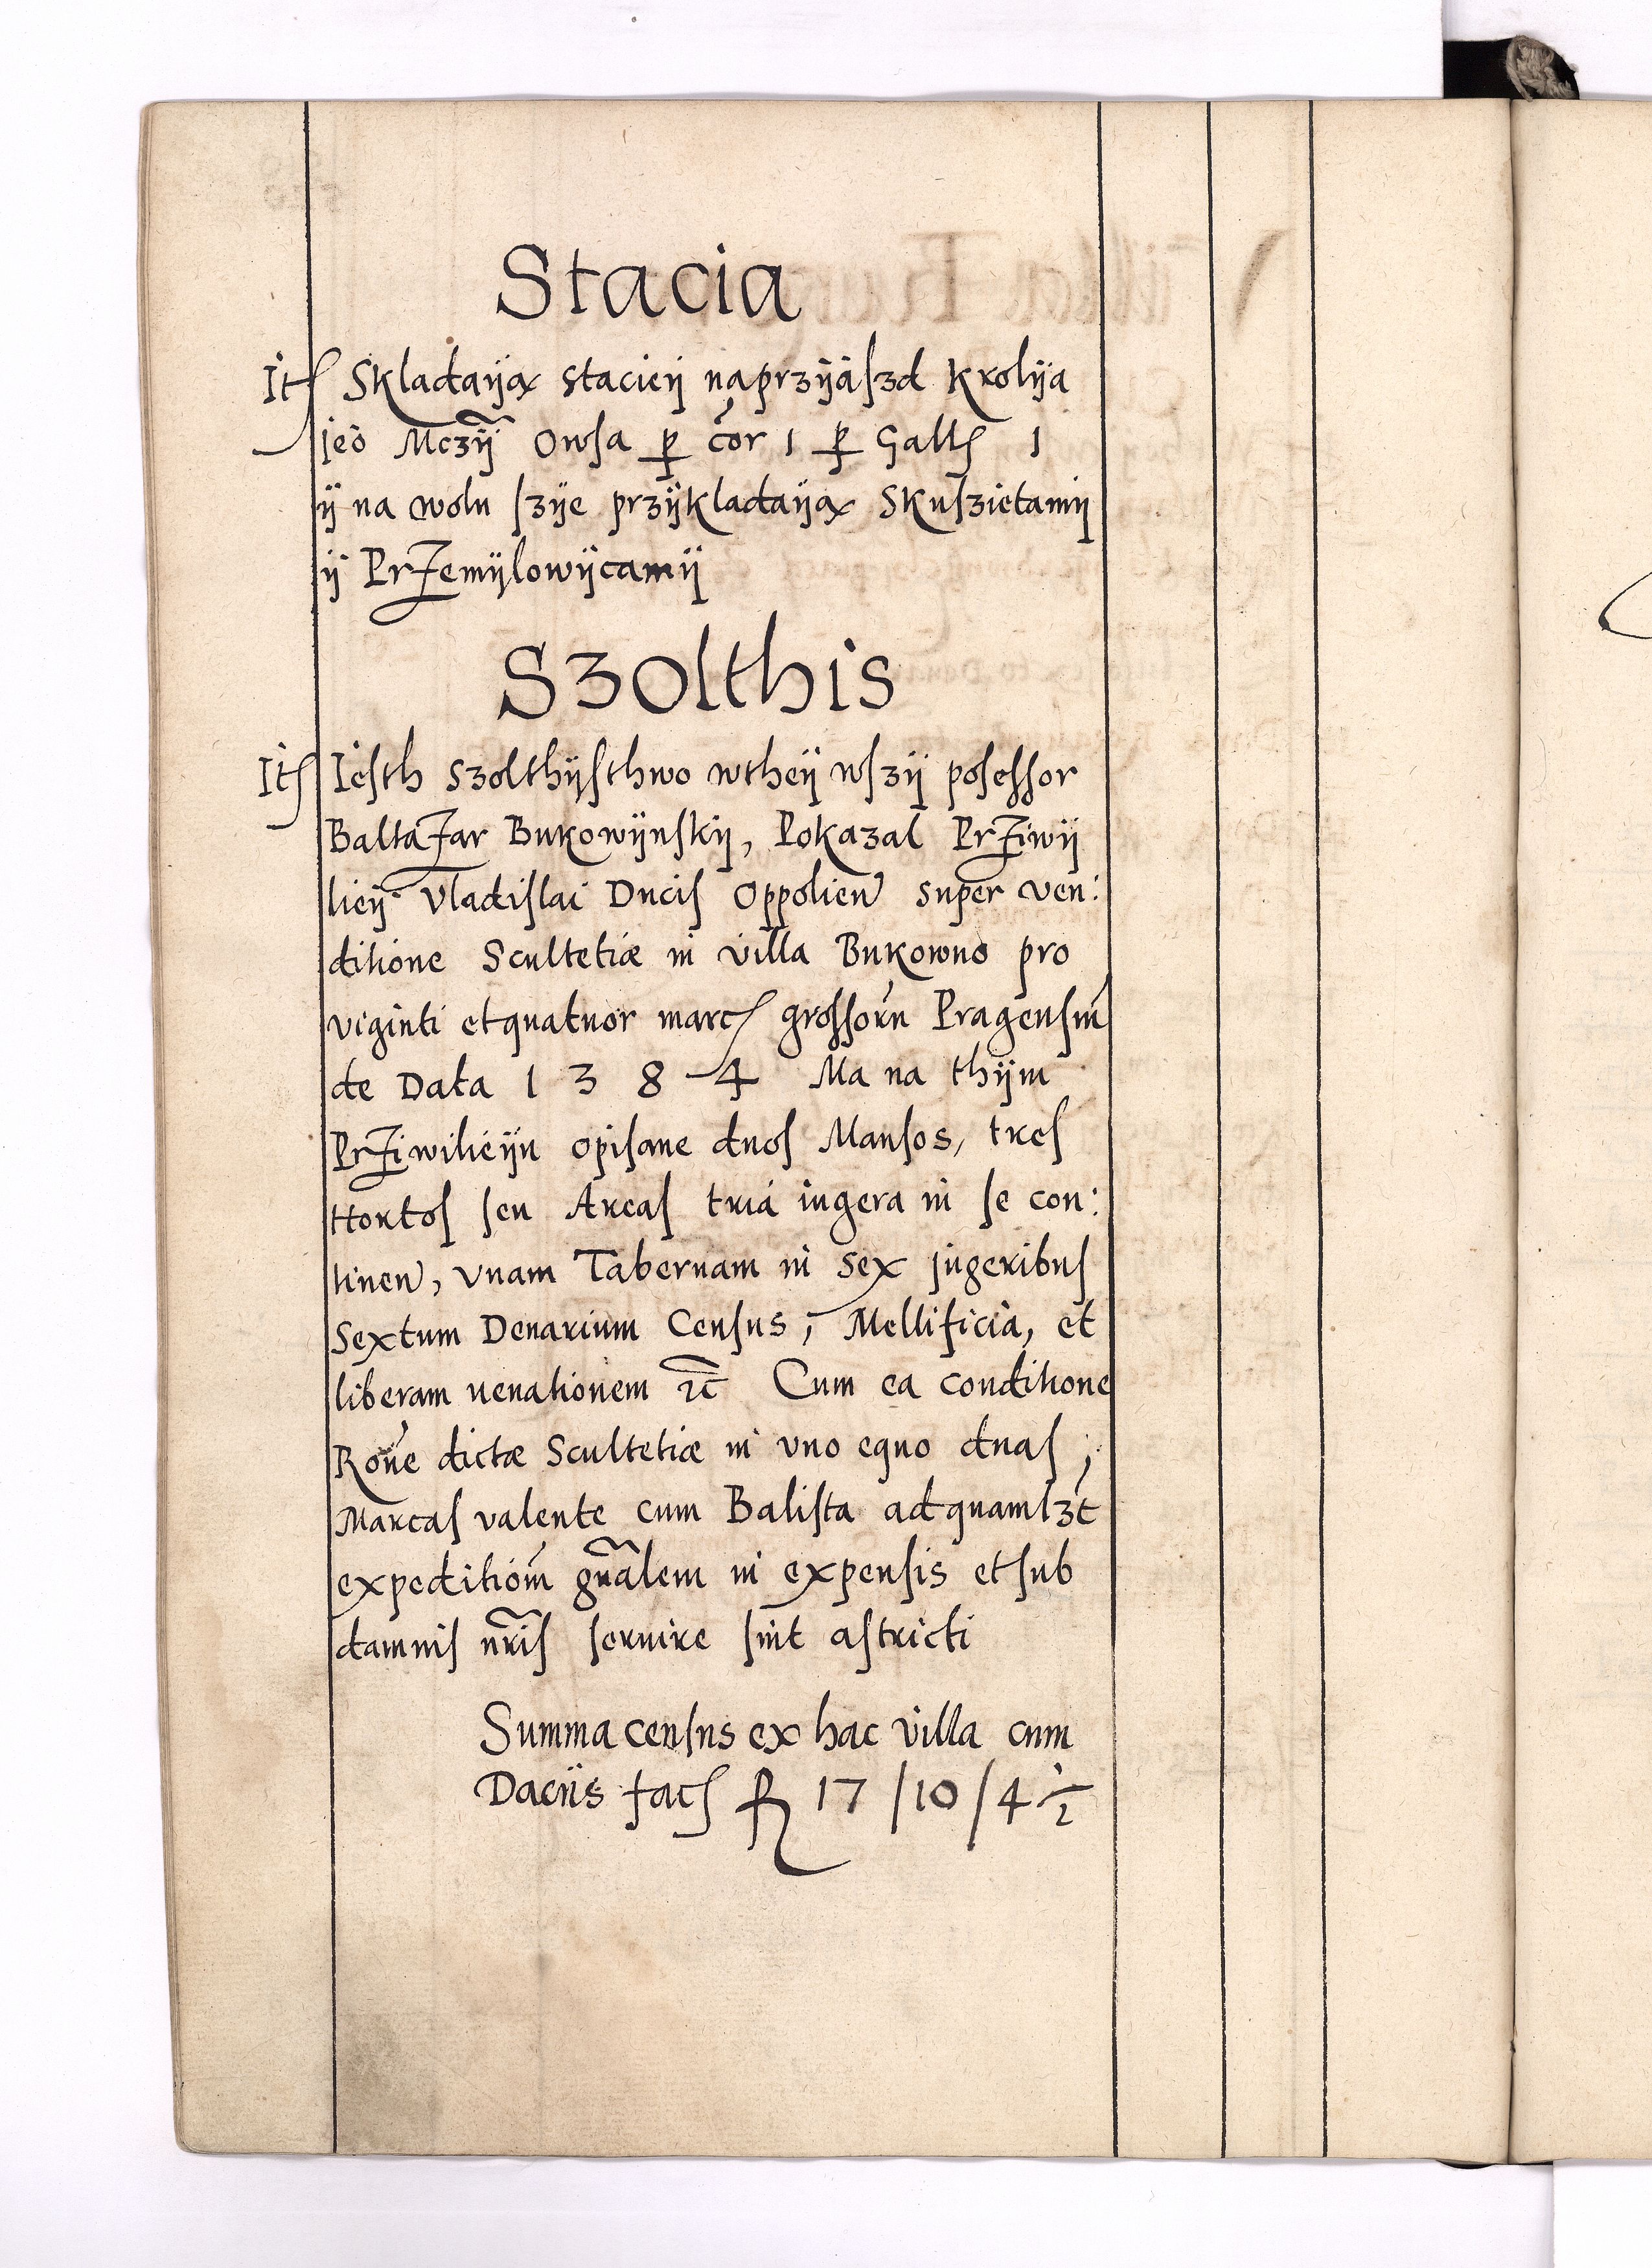 Stacia
Itꝭ Skladaÿą Stacieÿ naprzÿaſzd Krolÿa
jeo Mczÿ Owſa ꝑ cor 1 ꝑ Gallꝭ 1
ÿ na wolu ſzÿe przÿkladaÿą Skuſzietamÿ
ÿ Prżemÿlowÿcamÿ
Szolthis
Itꝭ Ieſth Szolthÿſthwo wtheÿ wſzÿ poſeſſor
Baltażar Bukowÿnſkÿ, Pokazal Prżiwÿ
lieÿ Vladiſlai Ducis Oppolien super ven:
ditione Scultetiæ in villa Bukowno pro
viginti et quatuor marcꝭ groſſorũ Pragenſiũ
de Data 1 3 8 4 Ma na thÿm
Prżiwilieÿu opiſane duos Manſos, tres
Hortos ſeu Areas tria iugera in ſe con:
tinen, vnam Tabernam in sex jugeribus
Sextum Denarium Cenſus, Mellificia, et
liberam uenationem ꝛc̃ Cum ea conditione
Rõne dictæ Scultetiæ in vno equo duas,
Marcas valente cum Baliſta ad quamlꝫt
expeditiom̃ gñalem in expenſis et ſub
damnis nr̃is ſeruire ſint aſtricti
Summa cenſus ex hac villa cum
Daciis facꝭ fl 17 /10 /4 ½